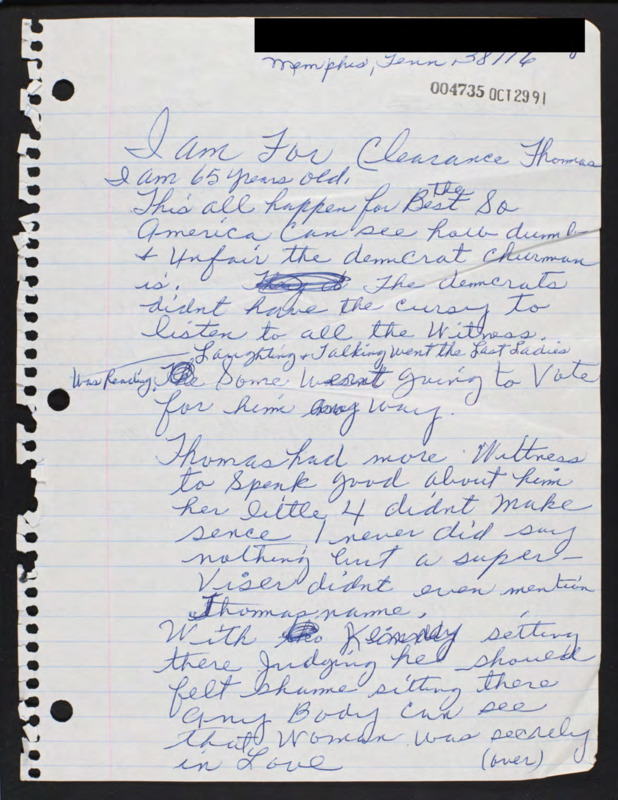 Memphis, Tenn, 38116
004735 OCT 29 91
I am For Clearance Thomas
I am 65 years old.
This all happen for the Best So
America Can see how dumb
+ Unfair the demcrat churman
is. The demcrats
didnt have the cursy to
listen to all the Witness.
Laughting + Talking went the Last Ladies
Was Reading, Some Wesnt going to Vote
for him way.
Thomas had more Wittness
to Speak good about him
her little 4 didnt Make
sence 1 never did say
nothing but a super-
Viser didnt even mention
Thomas name.
With Kennedy setting
there Judging he should
felt shame sitting there
Any Body can see
that Woman was secrely
in Love (over)